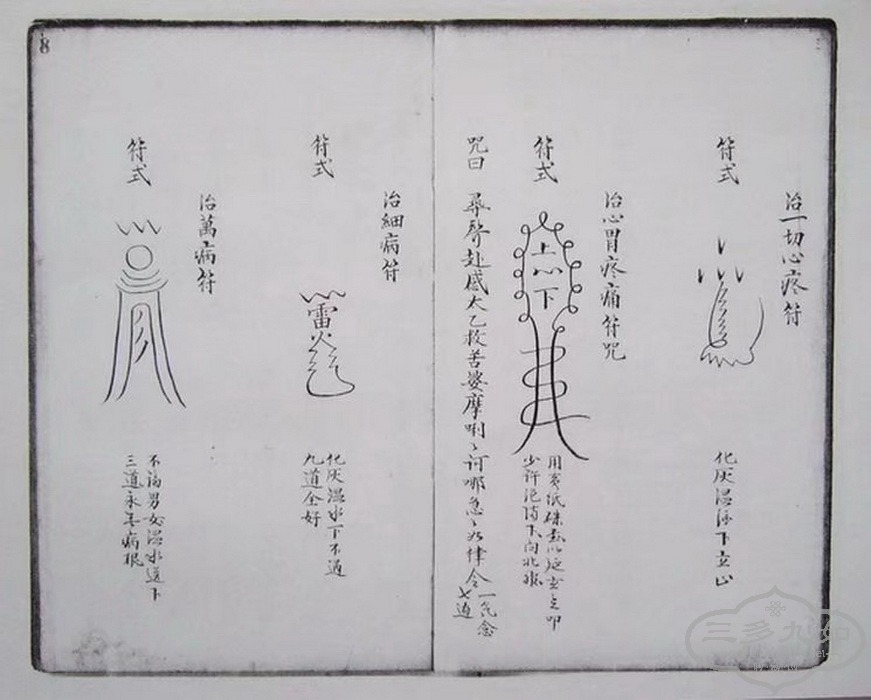 治一切心疼符
符式
化灰温汤下立止
治心胃疼痛符咒
符式
上心下
用黄纸硃
少许
下向北
咒曰
尋聲赴感太乙救苦婆摩唎〻訶哪急〻如律令
一氣念
七道
治細病符
符式
雷火
化灰温水下不過
九道全好
治萬病符
符式
不論男女温水送下
三道永無病根
8
三多九如